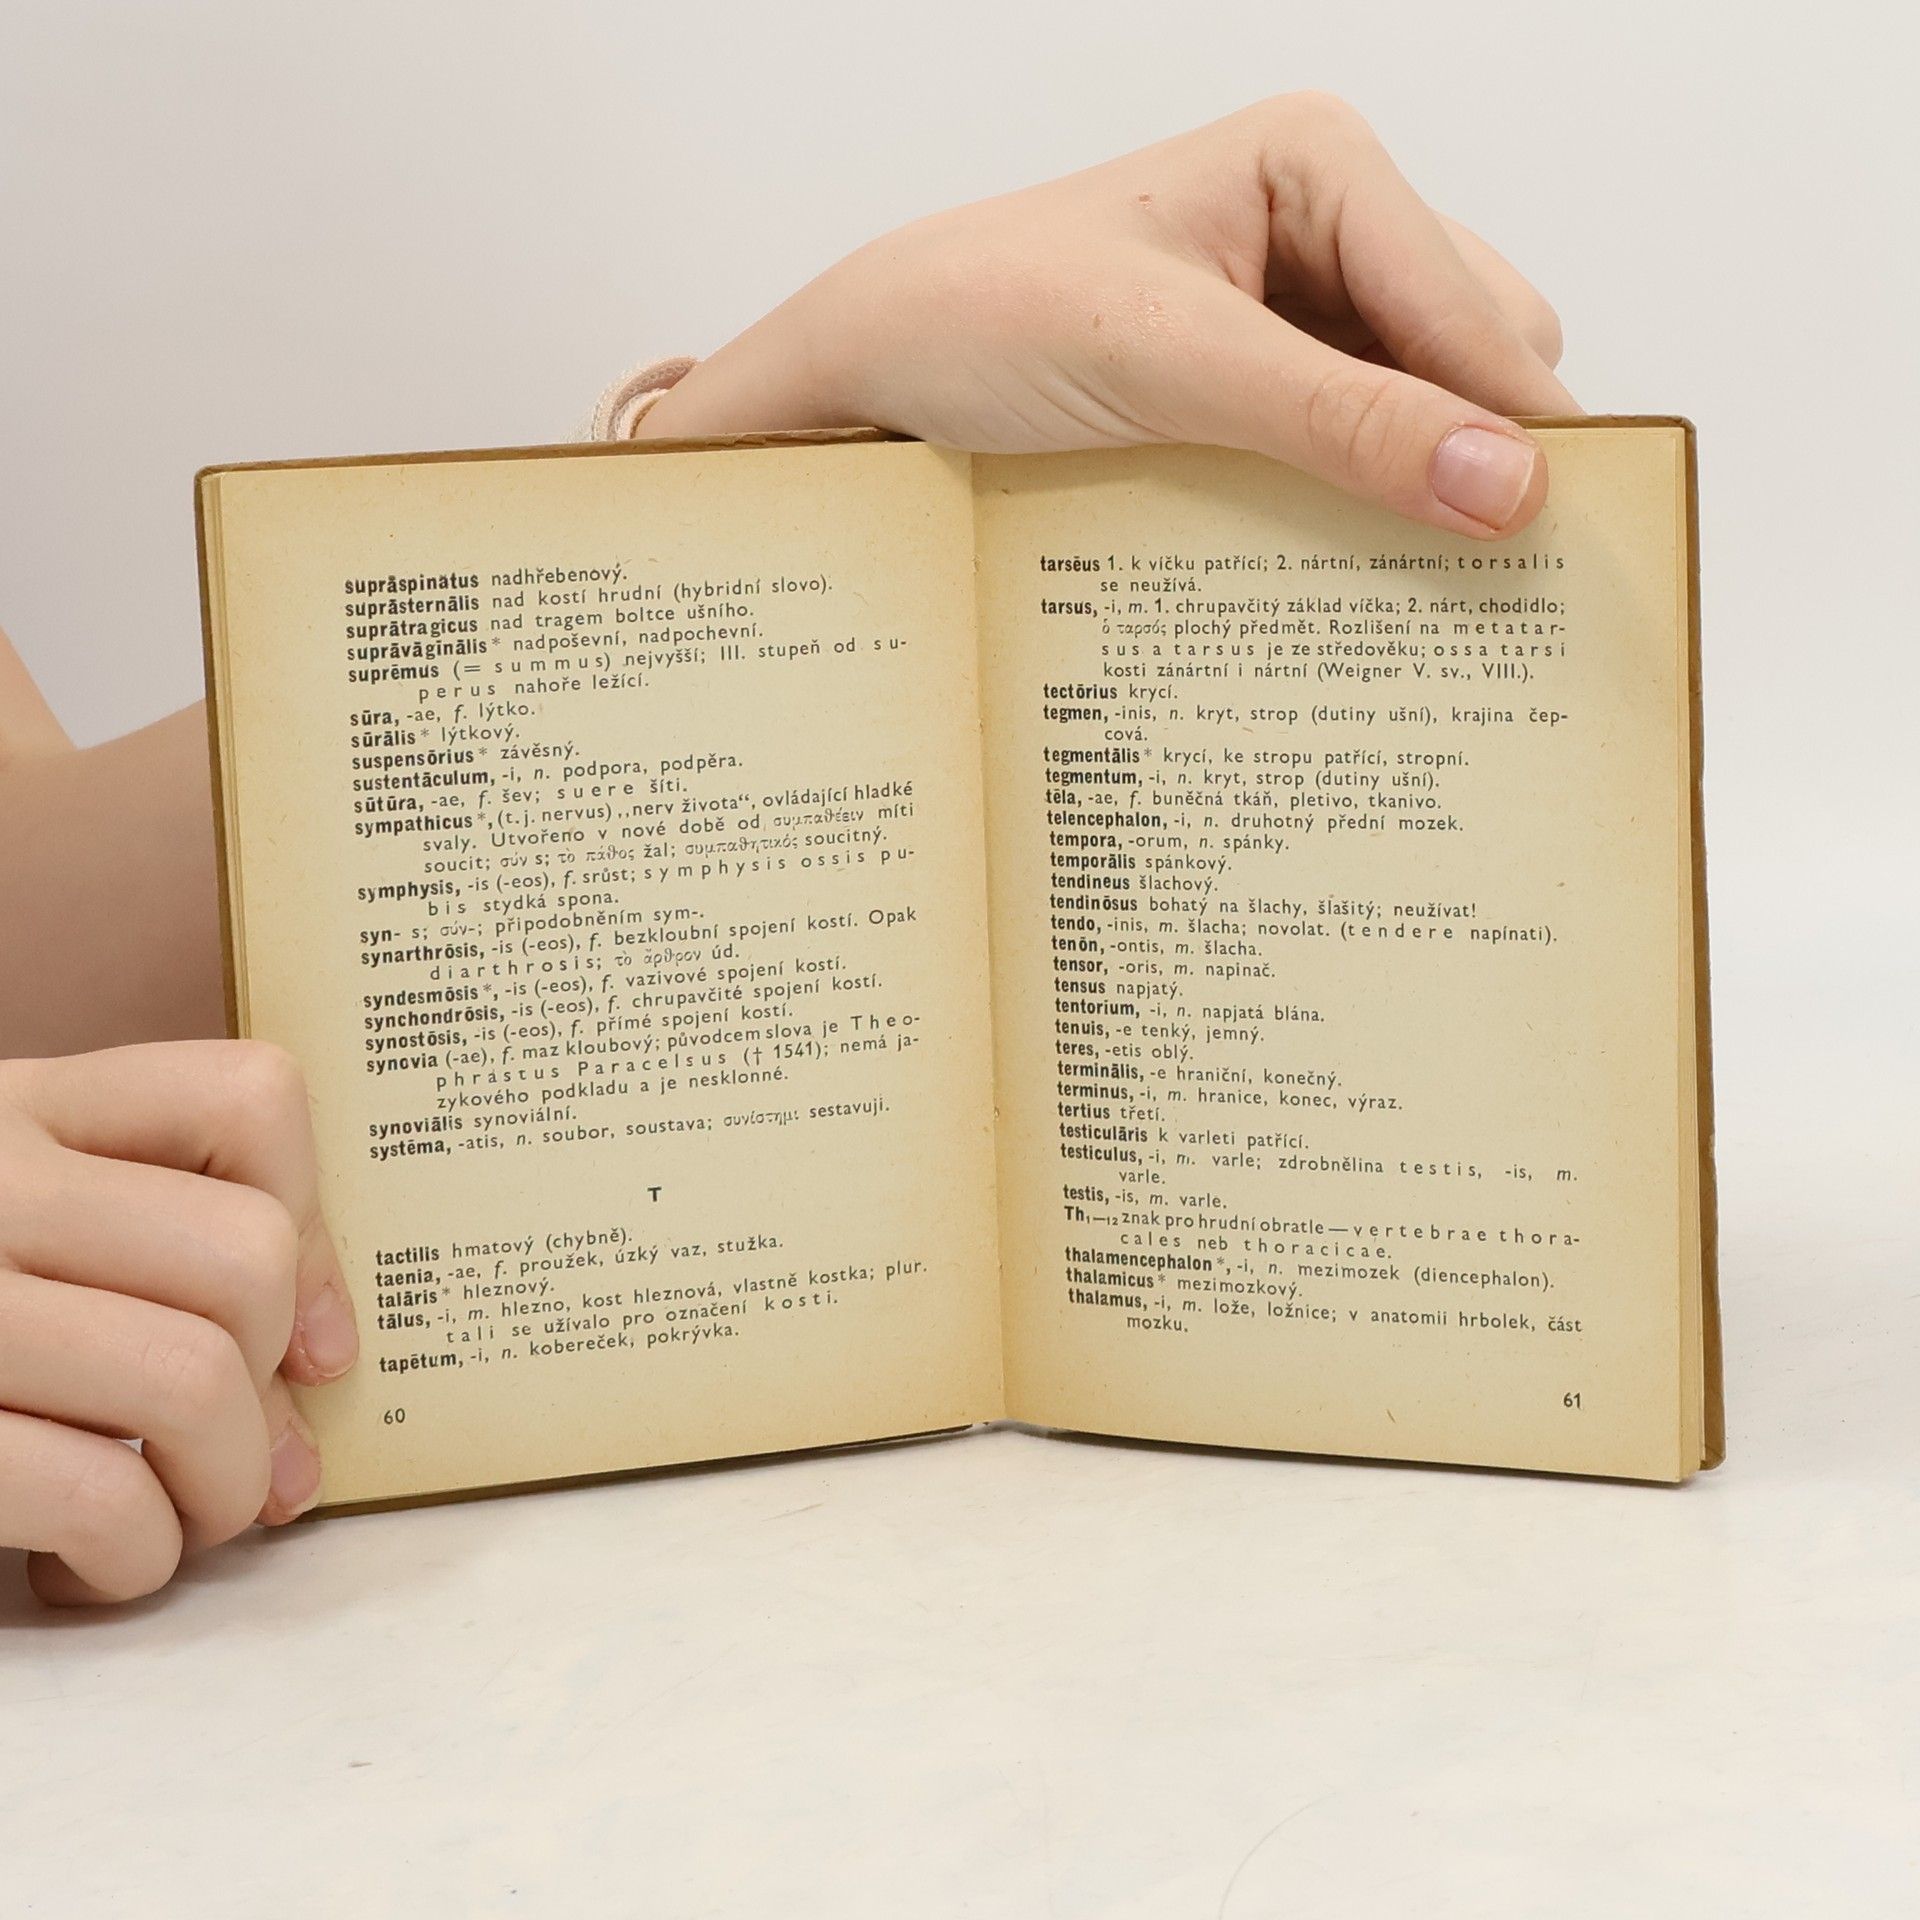 suprāspinātus nadhřebenový.
suprāsternālis nad kostí hrudní (hybridní slovo).
suprātragicus nad tragem boltce ušního.
suprāvāgīnālis* nadpoševní, nadpochevní.
suprēmus (= summus) nejvyšší; III. stupeň od su-
perus nahoře ležící.
sūra, -ae, f. lýtko.
sūrālis* lýtkový.
suspensōrius* závěsný.
sustentāculum, -i, n. podpora, podpěra.
sūtūra, -ae, f. šev; suere šíti.
sympathicus*, (t. j. nervus) ,,nerv života“, ovládající hladké
svaly. Utvořeno v nové době od συμπαθέειν míti
soucit; σύν s; τὸ πάθος žal; συμπαθητικός soucitný.
symphysis, -is (-eos), f. srůst; symphysis ossis pu-
bis stydká spona.
syn- s; σύν-; připodobněním sym-.
synarthrōsis, -is (-eos), f. bezkloubní spojení kostí. Opak
diarthrosis; τὸ ἄρθρον úd.
syndesmōsis*, -is (-eos), f. vazivové spojení kostí.
synchondrōsis, -is (-eos), f. chrupavčité spojení kostí.
synostōsis, -is (-eos), f. přímé spojení kostí.
synovia (-ae), f. maz kloubový; původcem slova je Theo-
phrastus Paracelsus († 1541); nemá ja-
zykového podkladu a je nesklonné.
synoviālis synoviální.
systēma, -atis, n. soubor, soustava; συνίστημι sestavuji.
T
tactilis hmatový (chybně).
taenia, -ae, f. proužek, úzký vaz, stužka.
talāris* hleznový.
tālus, -i, m. hlezno, kost hleznová, vlastně kostka; plur.
tali se užívalo pro označení kosti.
tapētum, -i, n. kobereček, pokrývka.
60
tarsēus 1. k víčku patřící; 2. nártní, zánártní; torsalis
se neužívá.
tarsus, -i, m. 1. chrupavčitý základ víčka; 2. nárt, chodidlo;
ὁ ταρσός plochý předmět. Rozlišení na metatar-
sus a tarsus je ze středověku; ossa tarsi
kosti zánártní i nártní (Weigner V. sv., VIII.).
tectōrius krycí.
tegmen, -inis, n. kryt, strop (dutiny ušní), krajina čep-
cová.
tegmentālis* krycí, ke stropu patřící, stropní.
tegmentum, -i, n. kryt, strop (dutiny ušní).
tēla, -ae, f. buněčná tkáň, pletivo, tkanivo.
telencephalon, -i, n. druhotný přední mozek.
tempora, -orum, n. spánky.
temporālis spánkový.
tendineus šlachový.
tendinōsus bohatý na šlachy, šlašitý; neužívat!
tendo, -inis, m. šlacha; novolat. (tendere napínati).
tenōn, -ontis, m. šlacha.
tensor, -oris, m. napinač.
tensus napjatý.
tentorium, -i, n. napjatá blána.
tenuis, -e tenký, jemný.
teres, -etis oblý.
terminālis, -e hraniční, konečný.
terminus, -i, m. hranice, konec, výraz.
tertius třetí.
testiculāris k varleti patřící.
testiculus, -i, m. varle; zdrobnělina testis, -is, m.
varle.
testis, -is, m. varle.
Th₁—₁₂ znak pro hrudní obratle — vertebrae thora-
cales neb thoracicae.
thalamencephalon*, -i, n. mezimozek (diencephalon).
thalamicus* mezimozkový.
thalamus, -i, m. lože, ložnice; v anatomii hrbolek, část
mozku.
61